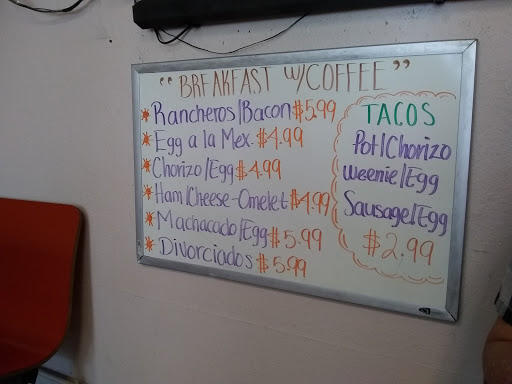 "BREAKFAST W/COFFEE"
* Rancheros/Bacon $5.99
* Egg a la Mex. $4.99
* Chorizo/Egg $4.99
* Ham/Cheese-Omelet $4.99
* Machacado/Egg $5.99
* Divorciados $5.99
TACOS
Pot/Chorizo
Weenie/Egg
Sausage/Egg
$2.99